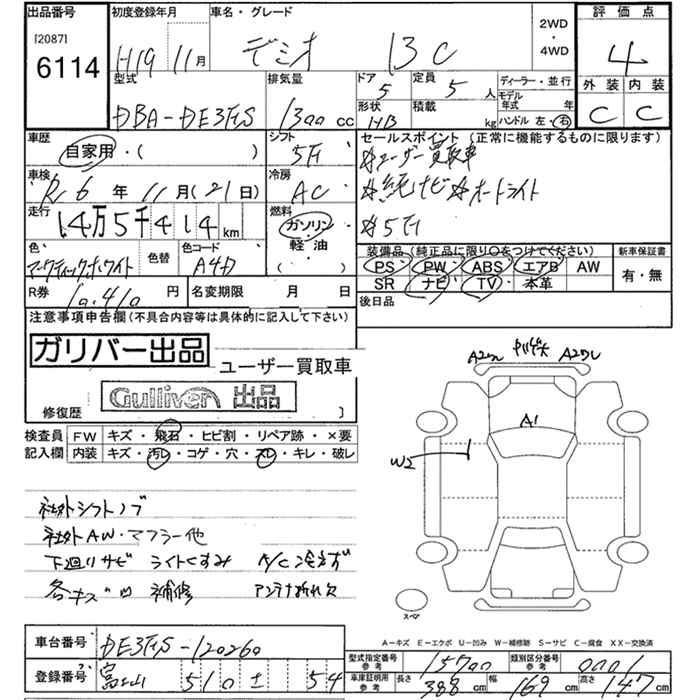 出品番号 初度登録年月 車名・グレード 2WD・4WD 評価点
[2087]
6114 H19 11月 デミオ 13C 4
型式 排気量 ドア 定員 ディーラー・並行 外装 内装
DBA-DE3FS 1300cc 5 5人 モデル年式 年 C C
形状 積載 ハンドル 左・右
HB kg
車歴 シフト セールスポイント(正常に機能するものに限ります)
自家用・( ) 5F ☆ユーザー買取車
車検 冷房 ☆純ナビ☆オートライト
R6年11月(21日) AC ☆5F
走行 燃料
14万5千414km ガソリン・軽油・( )
色 色替 色コード 装備品(純正品に限り○をつけてください) 新車保証書
マーブルティックホワイト A4D PS PW ABS エアB AW 有・無
R券 名変期限 月 日 SR ナビ TV 本革
10,410円 後日品
注意事項申告欄(不具合内容等は具体的に記入して下さい)
ガリバー出品 ユーザー買取車
Gulliver 出品
修復歴 ]
検査員記入欄 FW キズ・飛石・ヒビ割・リペア跡・×要
内装 キズ・汚レ・コゲ・穴・スレ・キレ・破レ
A2 A2
A1
W2
社外シフトノブ
社外AW・マフラー他
下廻りサビ ライトくすみ A/C冷えず
各キズ凹 補修 アンテナ折れ欠
スペア
A-キズ E-エクボ U-凹み W-補修跡 S-サビ C-腐食 XX-交換済
車台番号 DE3FS-120260
型式指定番号 参考 15700 類別区分番号 参考 0001
登録番号 富士山 510 す 54
車庫証明用 参考 長さ 388cm 幅 169cm 高さ 147cm